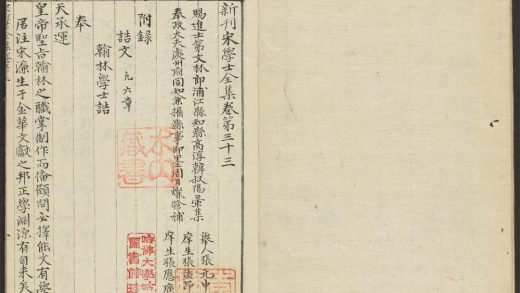 新刊宋學士全集卷第三十三
賜進士第文林郎浦江縣知縣高淳韓叔陽彙集
奉政大夫處州府同知兼攝縣事即墨周日燦脩補
舉人張元中
庠生張孟昂
庠生張應廣
附錄
誥文 凡六章
翰林學士誥
奉
天承運
皇帝聖旨翰林之職掌制作而備顧問必擇能文有學
居注宋濂生于金華文獻之邦正學淵源有自來矣
哈佛大學